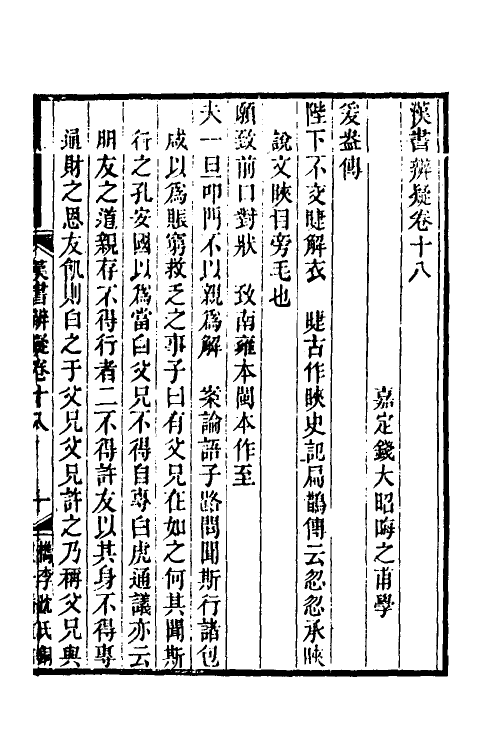 漢書辨疑卷十八
嘉定錢大昭晦之甫學
爰盎傳
陛下不交睫解衣　睫古作䀹史記扁鵲傳云忽忽承䀹
說文䀹目旁毛也
願致前口對狀　致南雍本閩本作至
夫一旦叩門不以親爲解　案論語子路問聞斯行諸包
咸以爲賑窮救乏之事子曰有父兄在如之何其聞斯
行之孔安國以爲當白父兄不得自專白虎通議亦云
朋友之道親存不得行者二不得許友以其身不得專
通財之恩友飢則白之于父兄父兄許之乃稱父兄與
漢書辨疑卷十八
十
檇李沈氏銅